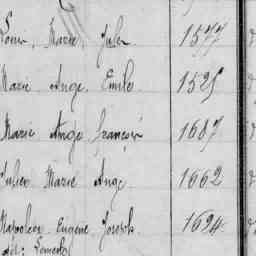 Louis, Marie, Jules 1577
Marie Ange Emile 1525
Marie Ange françois 1687
Julien Marie Ange 1662
Napoléon Eugène Joseph 1694